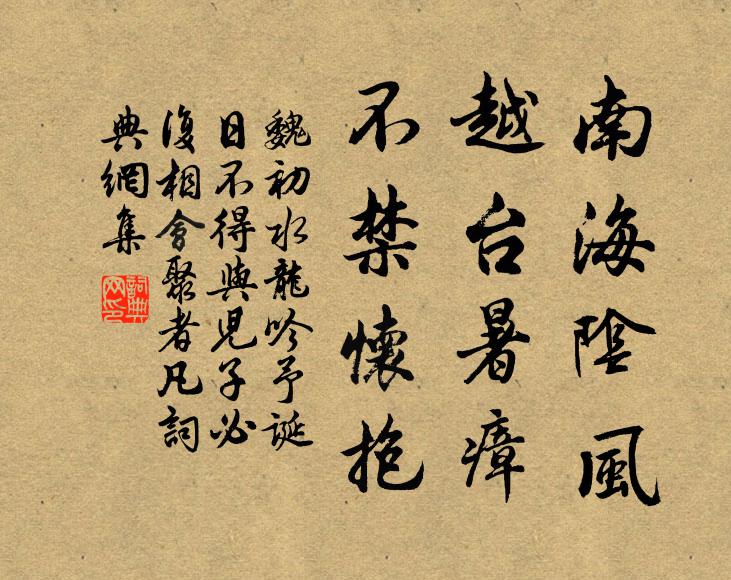 南海陰風
越台暑瘴
不禁懷抱
魏初水龍吟予誕
日不得與兒子必
復相會聚者凡詞
典網集
詞典
网印